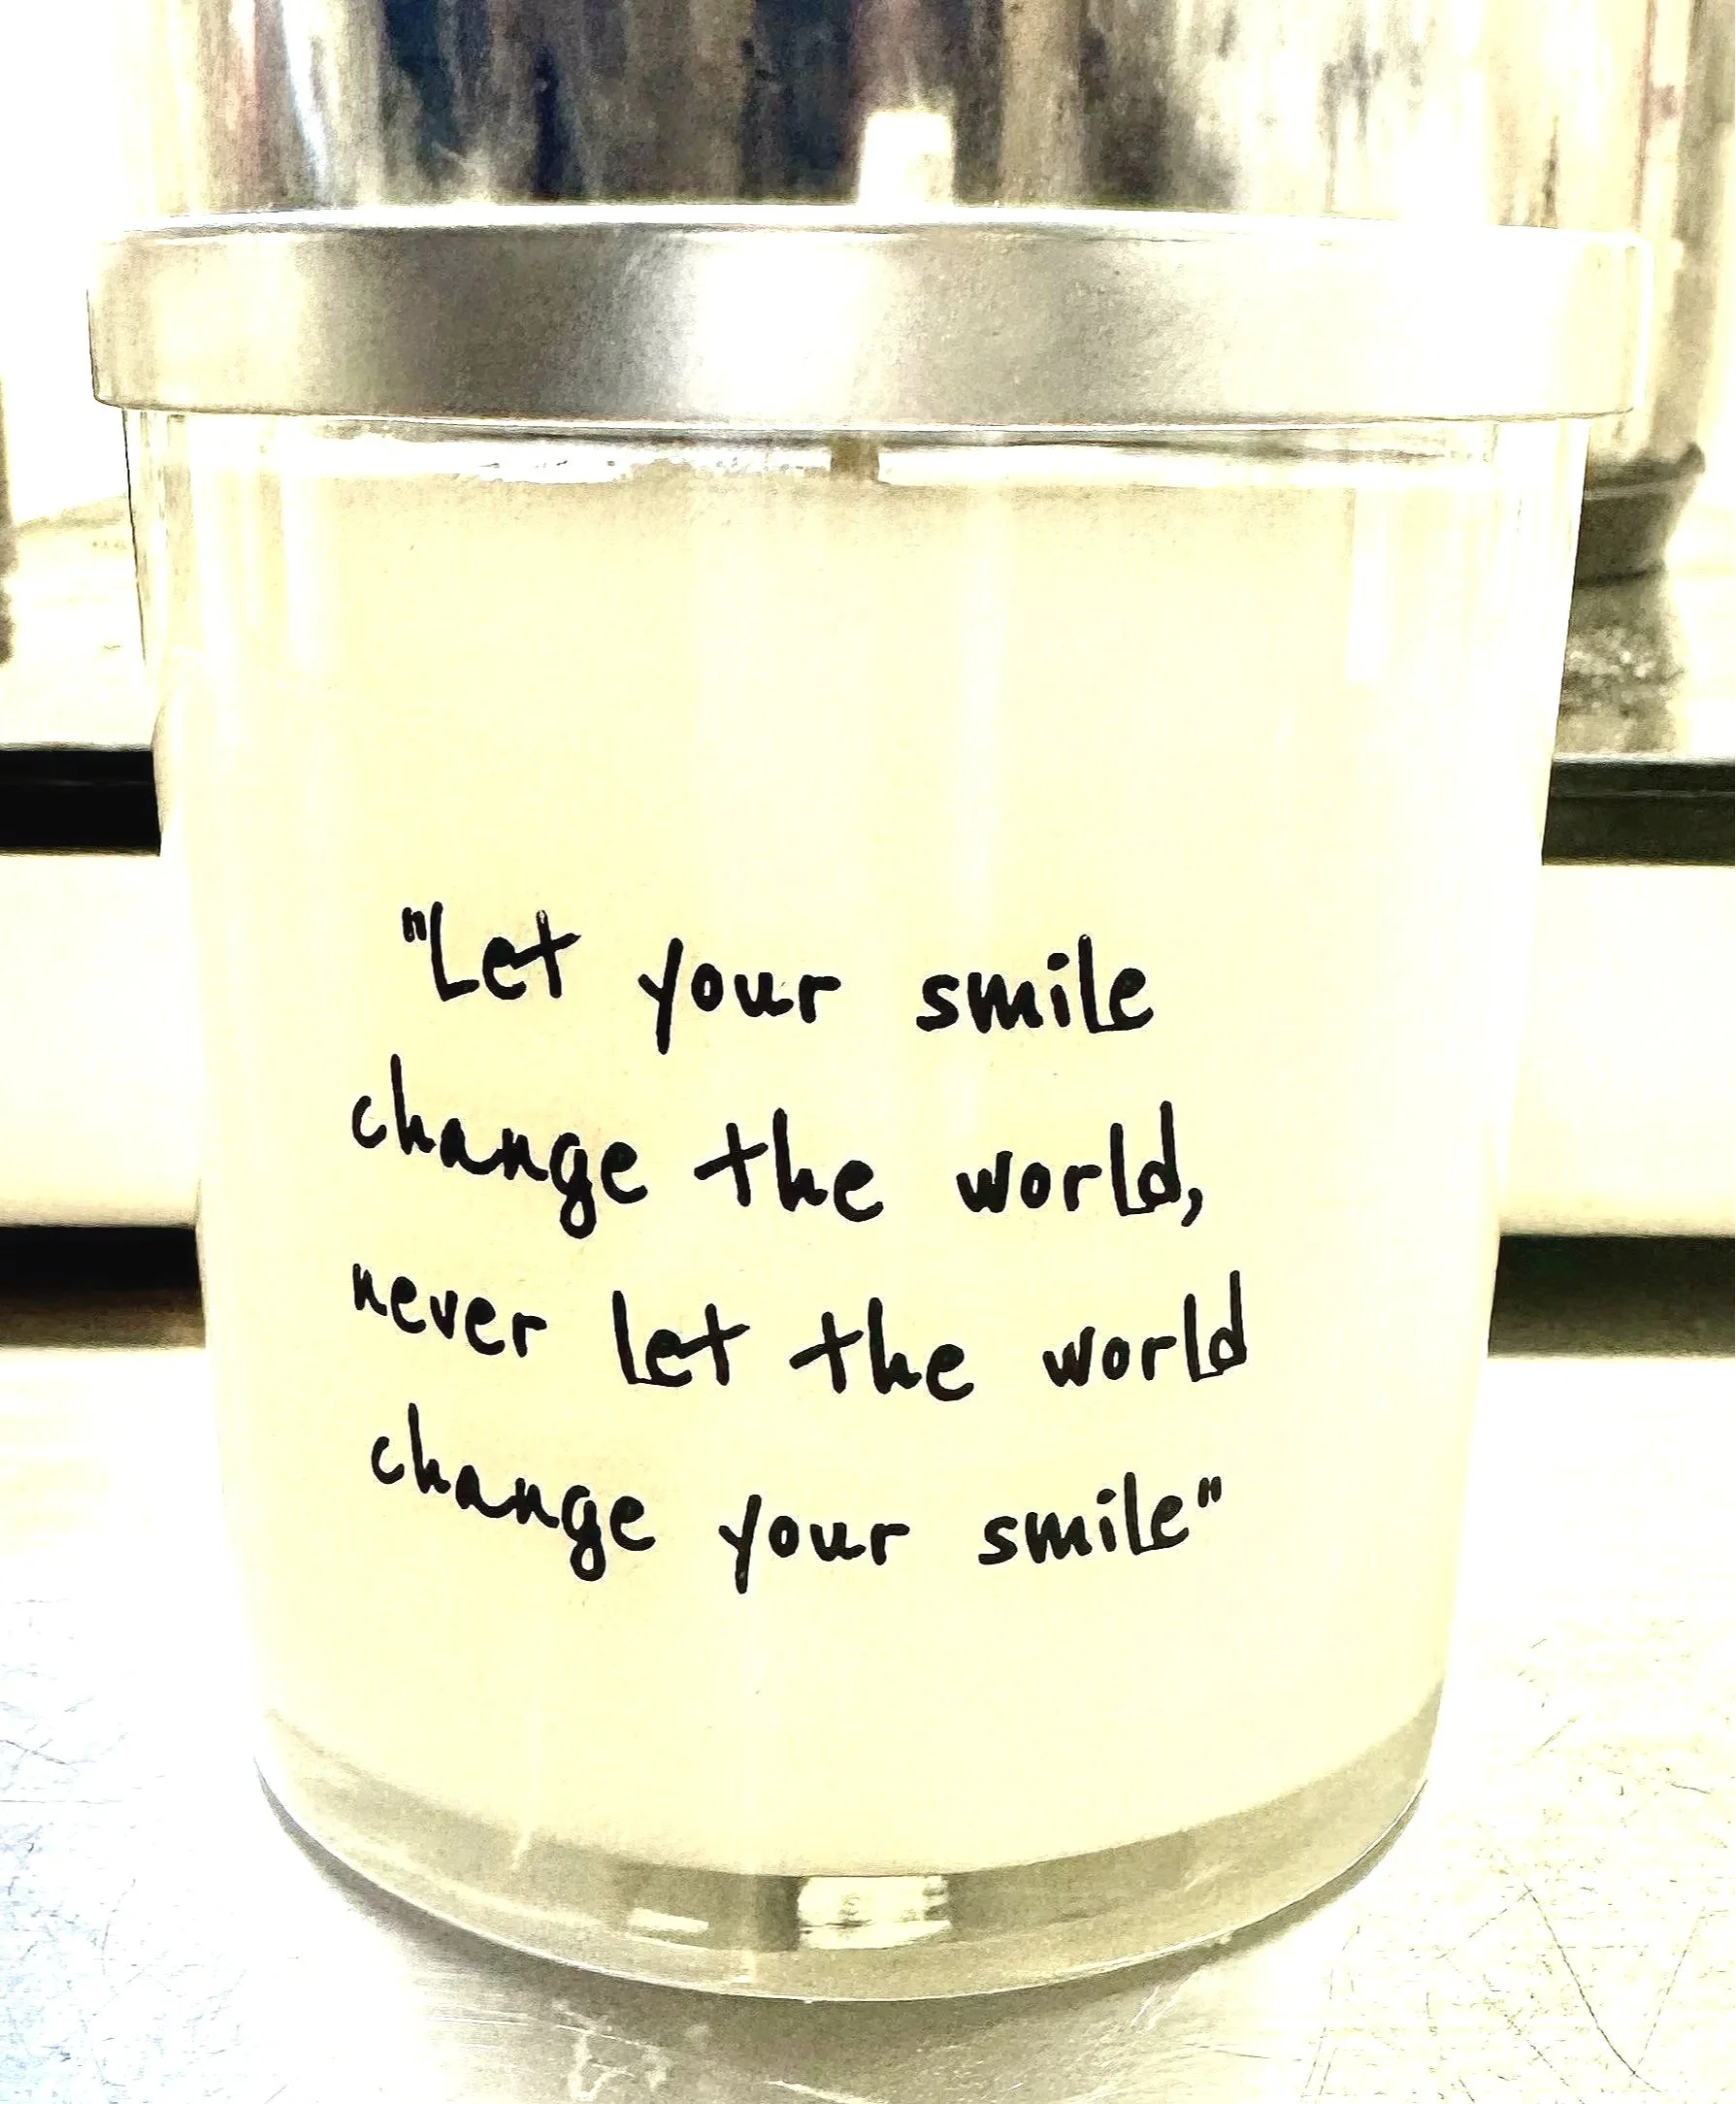 "Let your smile
change the world,
never let the world
change your smile"